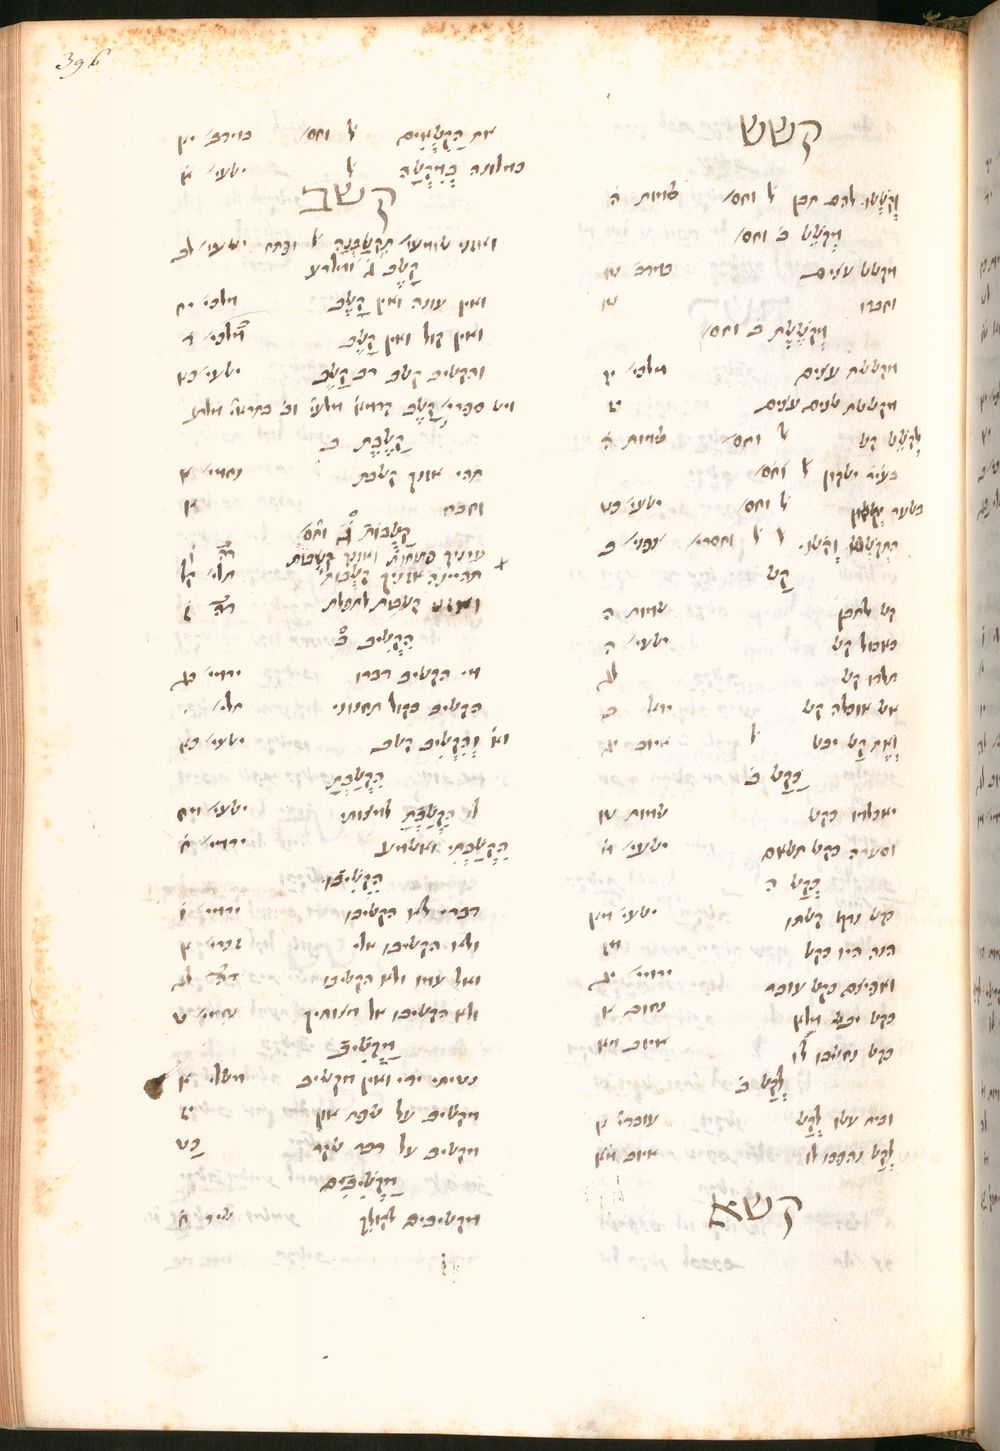 396
קשש
וְקֹשְׁשׁוּ להם תבן ל׳ וחס׳ שמות ה
מְקֹשֵׁשׁ ב׳ וחס׳
מקשש עצים במדב׳ טו
וחברו טו
מְקֹשֶׁשֶׁת ב׳ וחס׳
מקששת עצים מלכי׳ יז
מקששת שנים עצים יז
לְקֹשֵׁשׁ קש ל׳ וחס׳ שמות ה
ל׳ וחס׳
ל׳ וחס׳ ישעי׳ כט
הִתְקוֹשְׁשׁוּ וָקֹשּׁוּ ל׳ ל׳ וחסרי׳ צפני׳ ב
קַשׁ
קש לתבן שמות ה
כאכול קש ישעי׳ ה
תלדו קש לג
אש אוכלה קש יואל ב
וְאֶת קַשׁ יבש ל׳ איוב יג
כַּקַּשׁ ב׳
יאכלמו כקש שמות טו
וסערה כקש תשאם ישעי׳ מ
כְּקַשׁ ה
כקש נדף קשתו ישעי׳ מא
הנה היו כקש מז
ואפיצם כקש עובר ירמי׳ יג
כקש יבש מלא נחום א
כקש נחשבו לו איוב מא
לְקַשׁ ב׳
ובית עשו לְקַשׁ עובדי׳ א
לְקַשׁ נהפכו לו איוב מא
קשא
את הַקִּשֻּׁאִים ל׳ וחס׳ במדב׳ יא
כמלונה בְמִקְשָׁה ל׳ ישעי׳ א
קשב
ואזני שומעי׳ תִּקְשַׁבְנָה ל׳ ופתח ישעי׳ לב
קָשֶׁב ג׳ ומלרע
ואין עונה ואין קָשֶׁב מלכי׳ יח
ואין קול ואין קָשֶׁב מלכי׳ ד
והקשיב קשב רב קָשֶׁב ישעי׳ כא
ויש ספרי׳ קָשֶׁב קדמא׳ מלע׳ וב׳ בתראי׳ מלרע
קַשֶּׁבֶת ב
תהי אזנך קשבת נחמי׳ א
וחברו א
קַשֻּׁבוֹת ג׳ וחס׳
עיניך פתוחות ואזניך קשבות דה ו
תהיינה אזניך קַשֻּׁבוֹת תלי׳ קל
ואזני קשבות לתפלת דה ז
הִקְשִׁיב ב׳
מי הקשיב דברו ירמי׳ כג
הקשיב בקול תחנוני תלי׳
וא׳ וְהִקְשִׁיב קשב ישעי׳ כא
הִקְשַׁבְתָּ
לו הִקְשַׁבְתָּ למצותי ישעי׳ מח
הִקְשַׁבְתִּי ואשמע ירמי׳ ח
הִקְשִׁיבוּ
דברי לא הקשיבו ירמי׳ ו
ולא הקשיבו אלי זכרי׳ א
ואל עמו ולא הקשיבו דה לג
ולא הקשיבו אל מצותיך נחמי׳ ט
מַקְשִׁיב
נטיתי ידי ואין מקשיב משלי א
מקשיב על שפת און יז
מקשיב על דבר שקר כט
מַקְשִׁיבִים
מקשיבים לקולך שיר ח